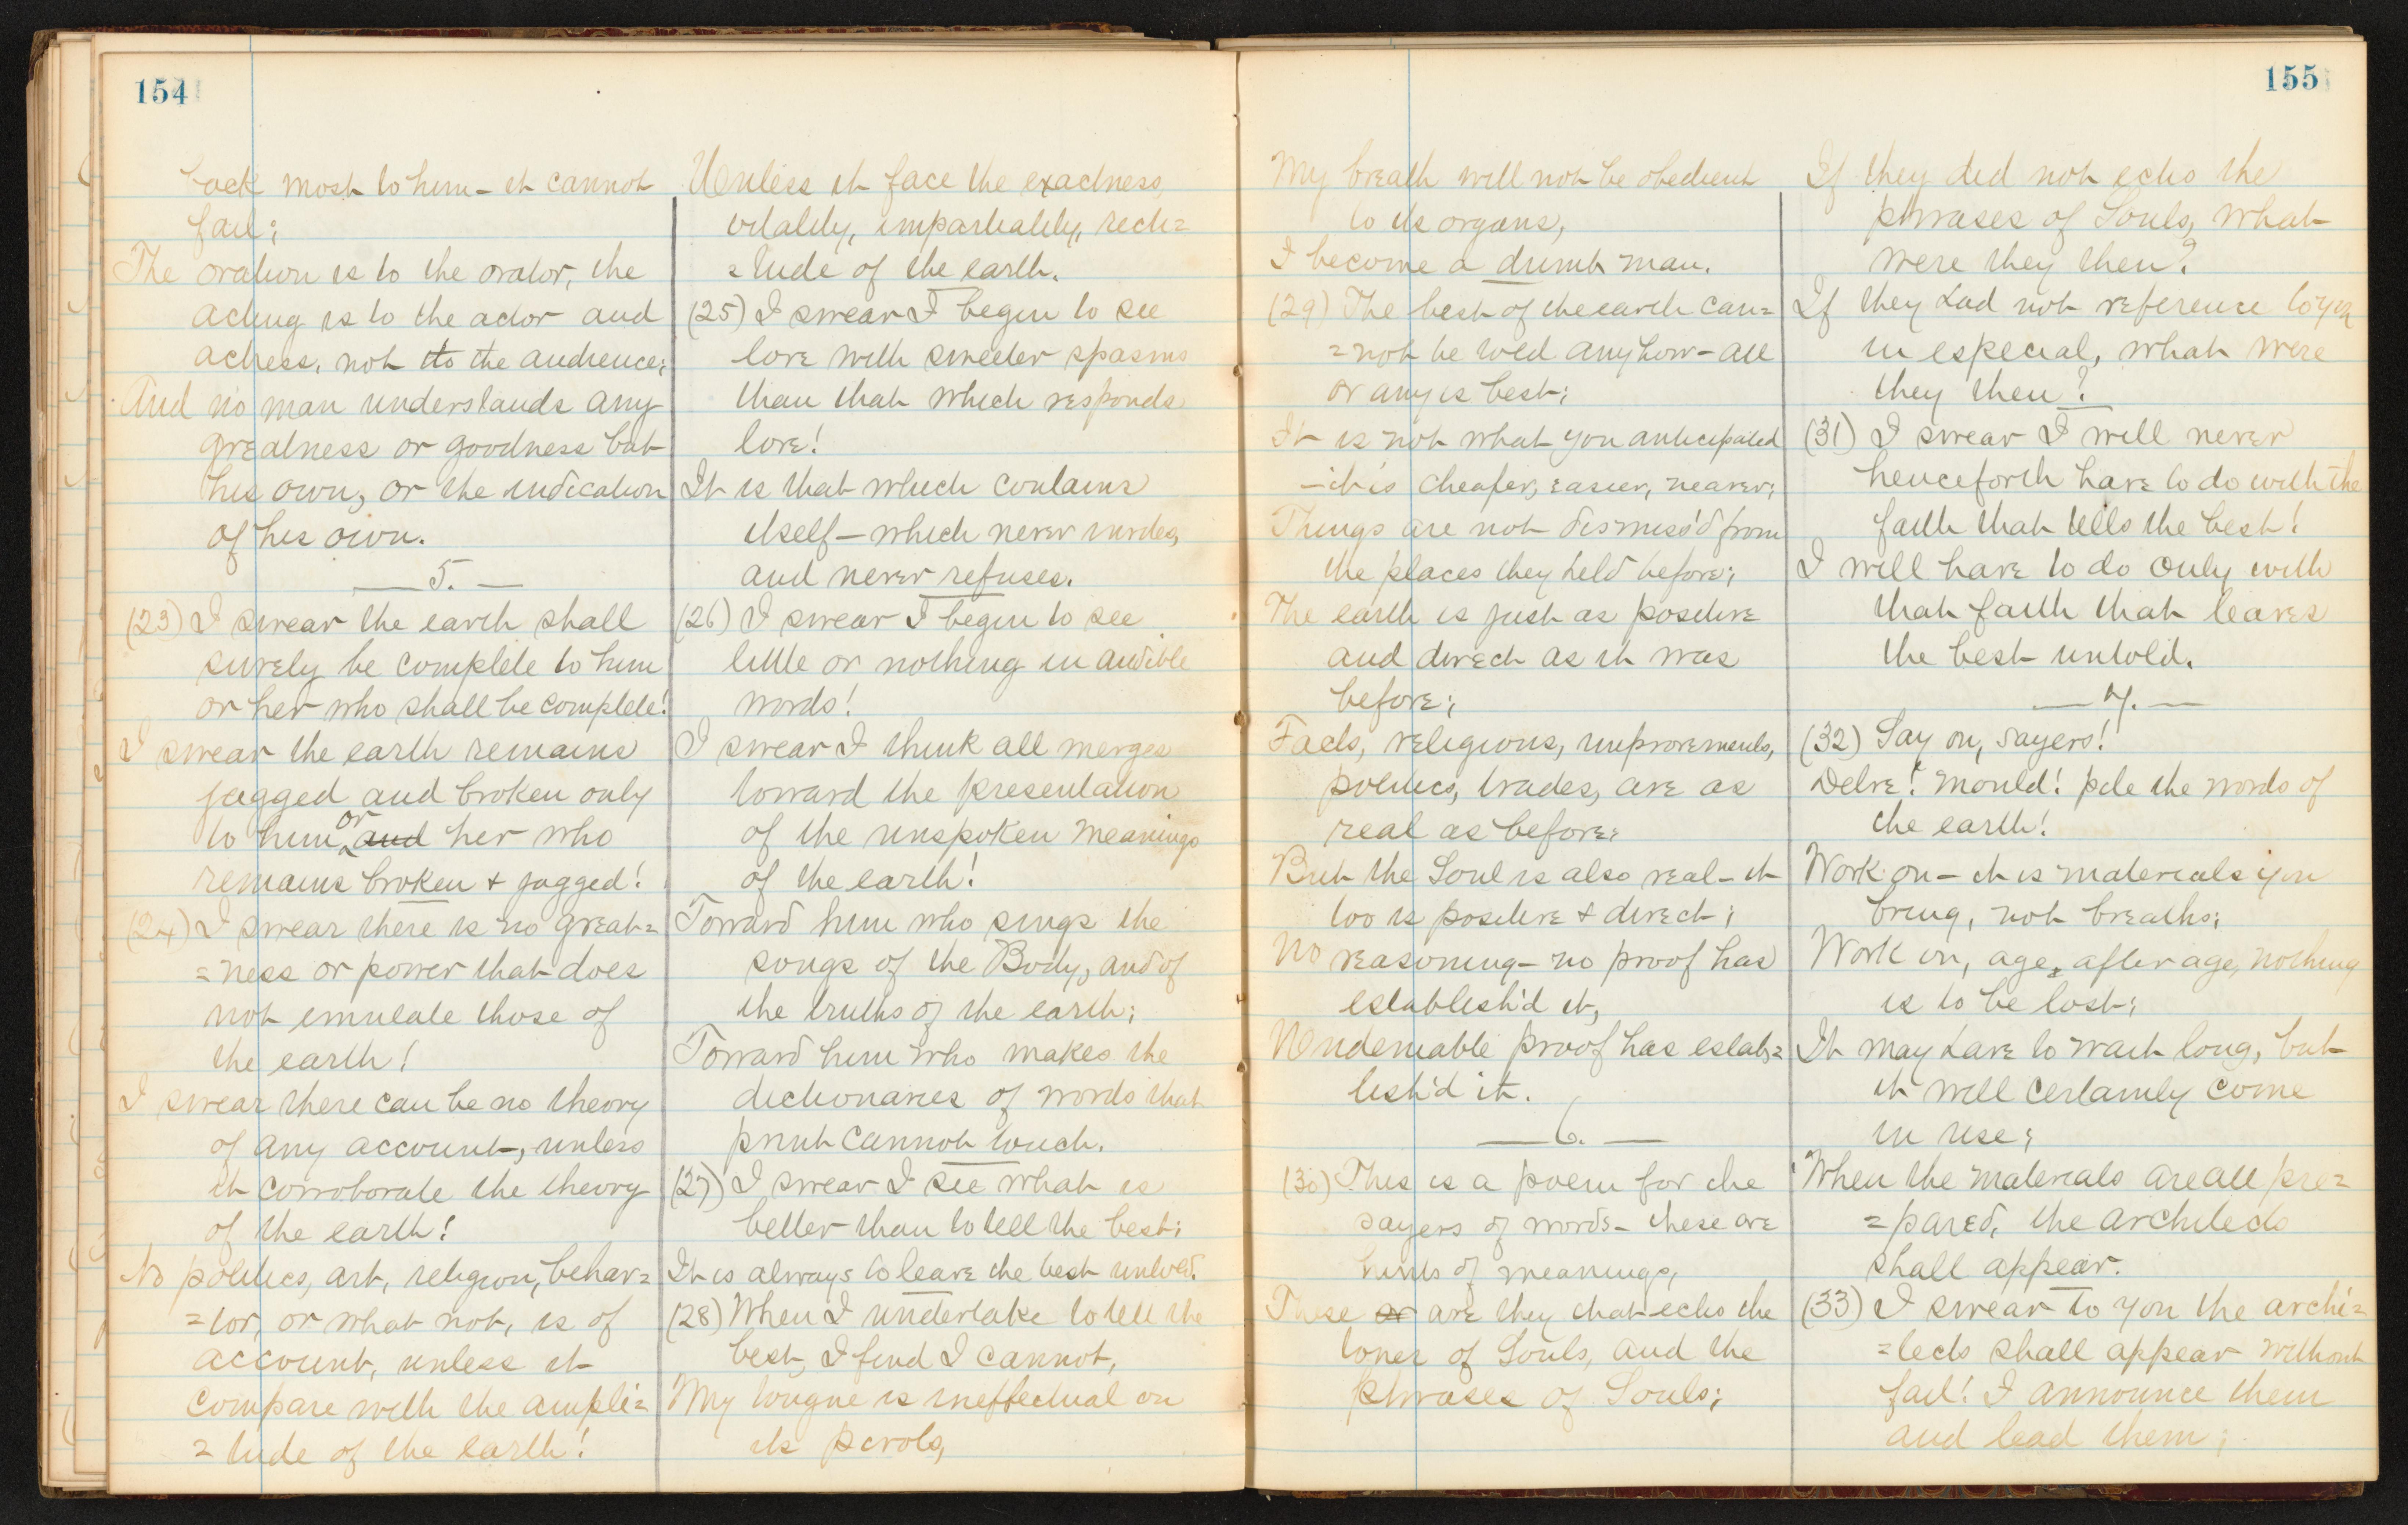 154
back most to him - it cannot
fail;
The oration is to the orator, the
acting is to the actor and
actress, not to the audience;
And no man understands any
greatness or goodness but
his own, or the indication
of his own.
— 5. —
(23) I swear the earth shall
surely be complete to him
or her who shall be complete!
I swear the earth remains
jagged and broken only
to him or and her who
remains broken + jagged!
(24) I swear there is no great=
=ness or power that does
not emulate those of
the earth!
I swear there can be no theory
of any account, unless
it corroborate the theory
of the earth!
No politics, art, religion, behav=
=ior, or what not, is of
account, unless it
compare with the ampli=
=tude of the earth!
Unless it face the exactness,
vitality, impartiality, recti=
=tude of the earth.
(25) I swear I begin to see
love with sweeter spasms
than that which responds
love!
It is that which contains
itself - which never invites,
and never refuses.
(26) I swear I begin to see
little or nothing in audible
words!
I swear I think all merges
toward the presentation
of the unspoken meanings
of the earth!
Toward him who sings the
songs of the Body, and of
the truths of the earth;
Toward him who makes the
dictionaries of words that
print cannot touch.
(27) I swear I see what is
better than to tell the best;
It is always to leave the best untold.
(28) When I undertake to tell the
best, I find I cannot,
My tongue is ineffectual on
its pivots,
155
My breath will not be obedient
to its organs,
I become a dumb man.
(29) The best of the earth can=
=not be told anyhow - all
or any is best;
It is not what you anticipated
- it is cheaper, easier, nearer;
Things are not dismiss'd from
the places they held before;
The earth is just as positive
and direct as it was
before;
Facts, religions, improvements,
politics, trades, are as
real as before;
But the Soul is also real - it
too is positive + direct;
No reasoning - no proof has
establish'd it,
Undeniable proof has estab=
lish'd it.
— 6. —
(30) This is a poem for the
sayers of words - these are
hints of meanings,
These or are they that echo the
tones of Souls, and the
phrases of Souls;
If they did not echo the
phrases of Souls, what
were they then?
If they had not reference to you
in especial, what were
they then?
(31) I swear I will never
henceforth have to do with the
faith that tells the best!
I will have to do only with
that faith that leaves
the best untold.
— 7. —
(32) Say on, sayers!
Delve! mould! pile the words of
the earth!
Work on - it is materials you
bring, not breaths;
Work on, age after age, nothing
is to be lost;
It may have to wait long, but
it will certainly come
in use;
When the materials are all pre=
=pared, the architects
shall appear.
(33) I swear to you the archi=
=tects shall appear without
fail! I announce them
and lead them;